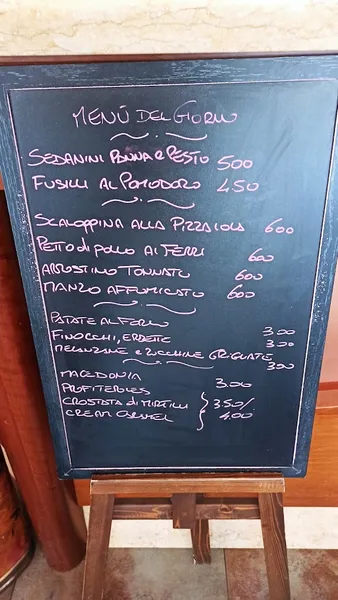 MENÙ DEL GIORNO
SEDANINI PANNA e PESTO 500
FUSILLI AL POMODORO 450
SCALOPPINA ALLA PIZZAIOLA 600
PETTO di pollo AI FERRI 600
ARROSTINO TONNATO 600
MANZO AFFUMICATO 600
PATATE AL FORNO 300
FINOCCHI, ERBETTE 300
MELANZANE e ZUCCHINE GRIGLIATE 300
MACEDONIA 300
PROFITEROLES
CROSTATA di MIRTILLI 350/
CREAM CARAMEL 400